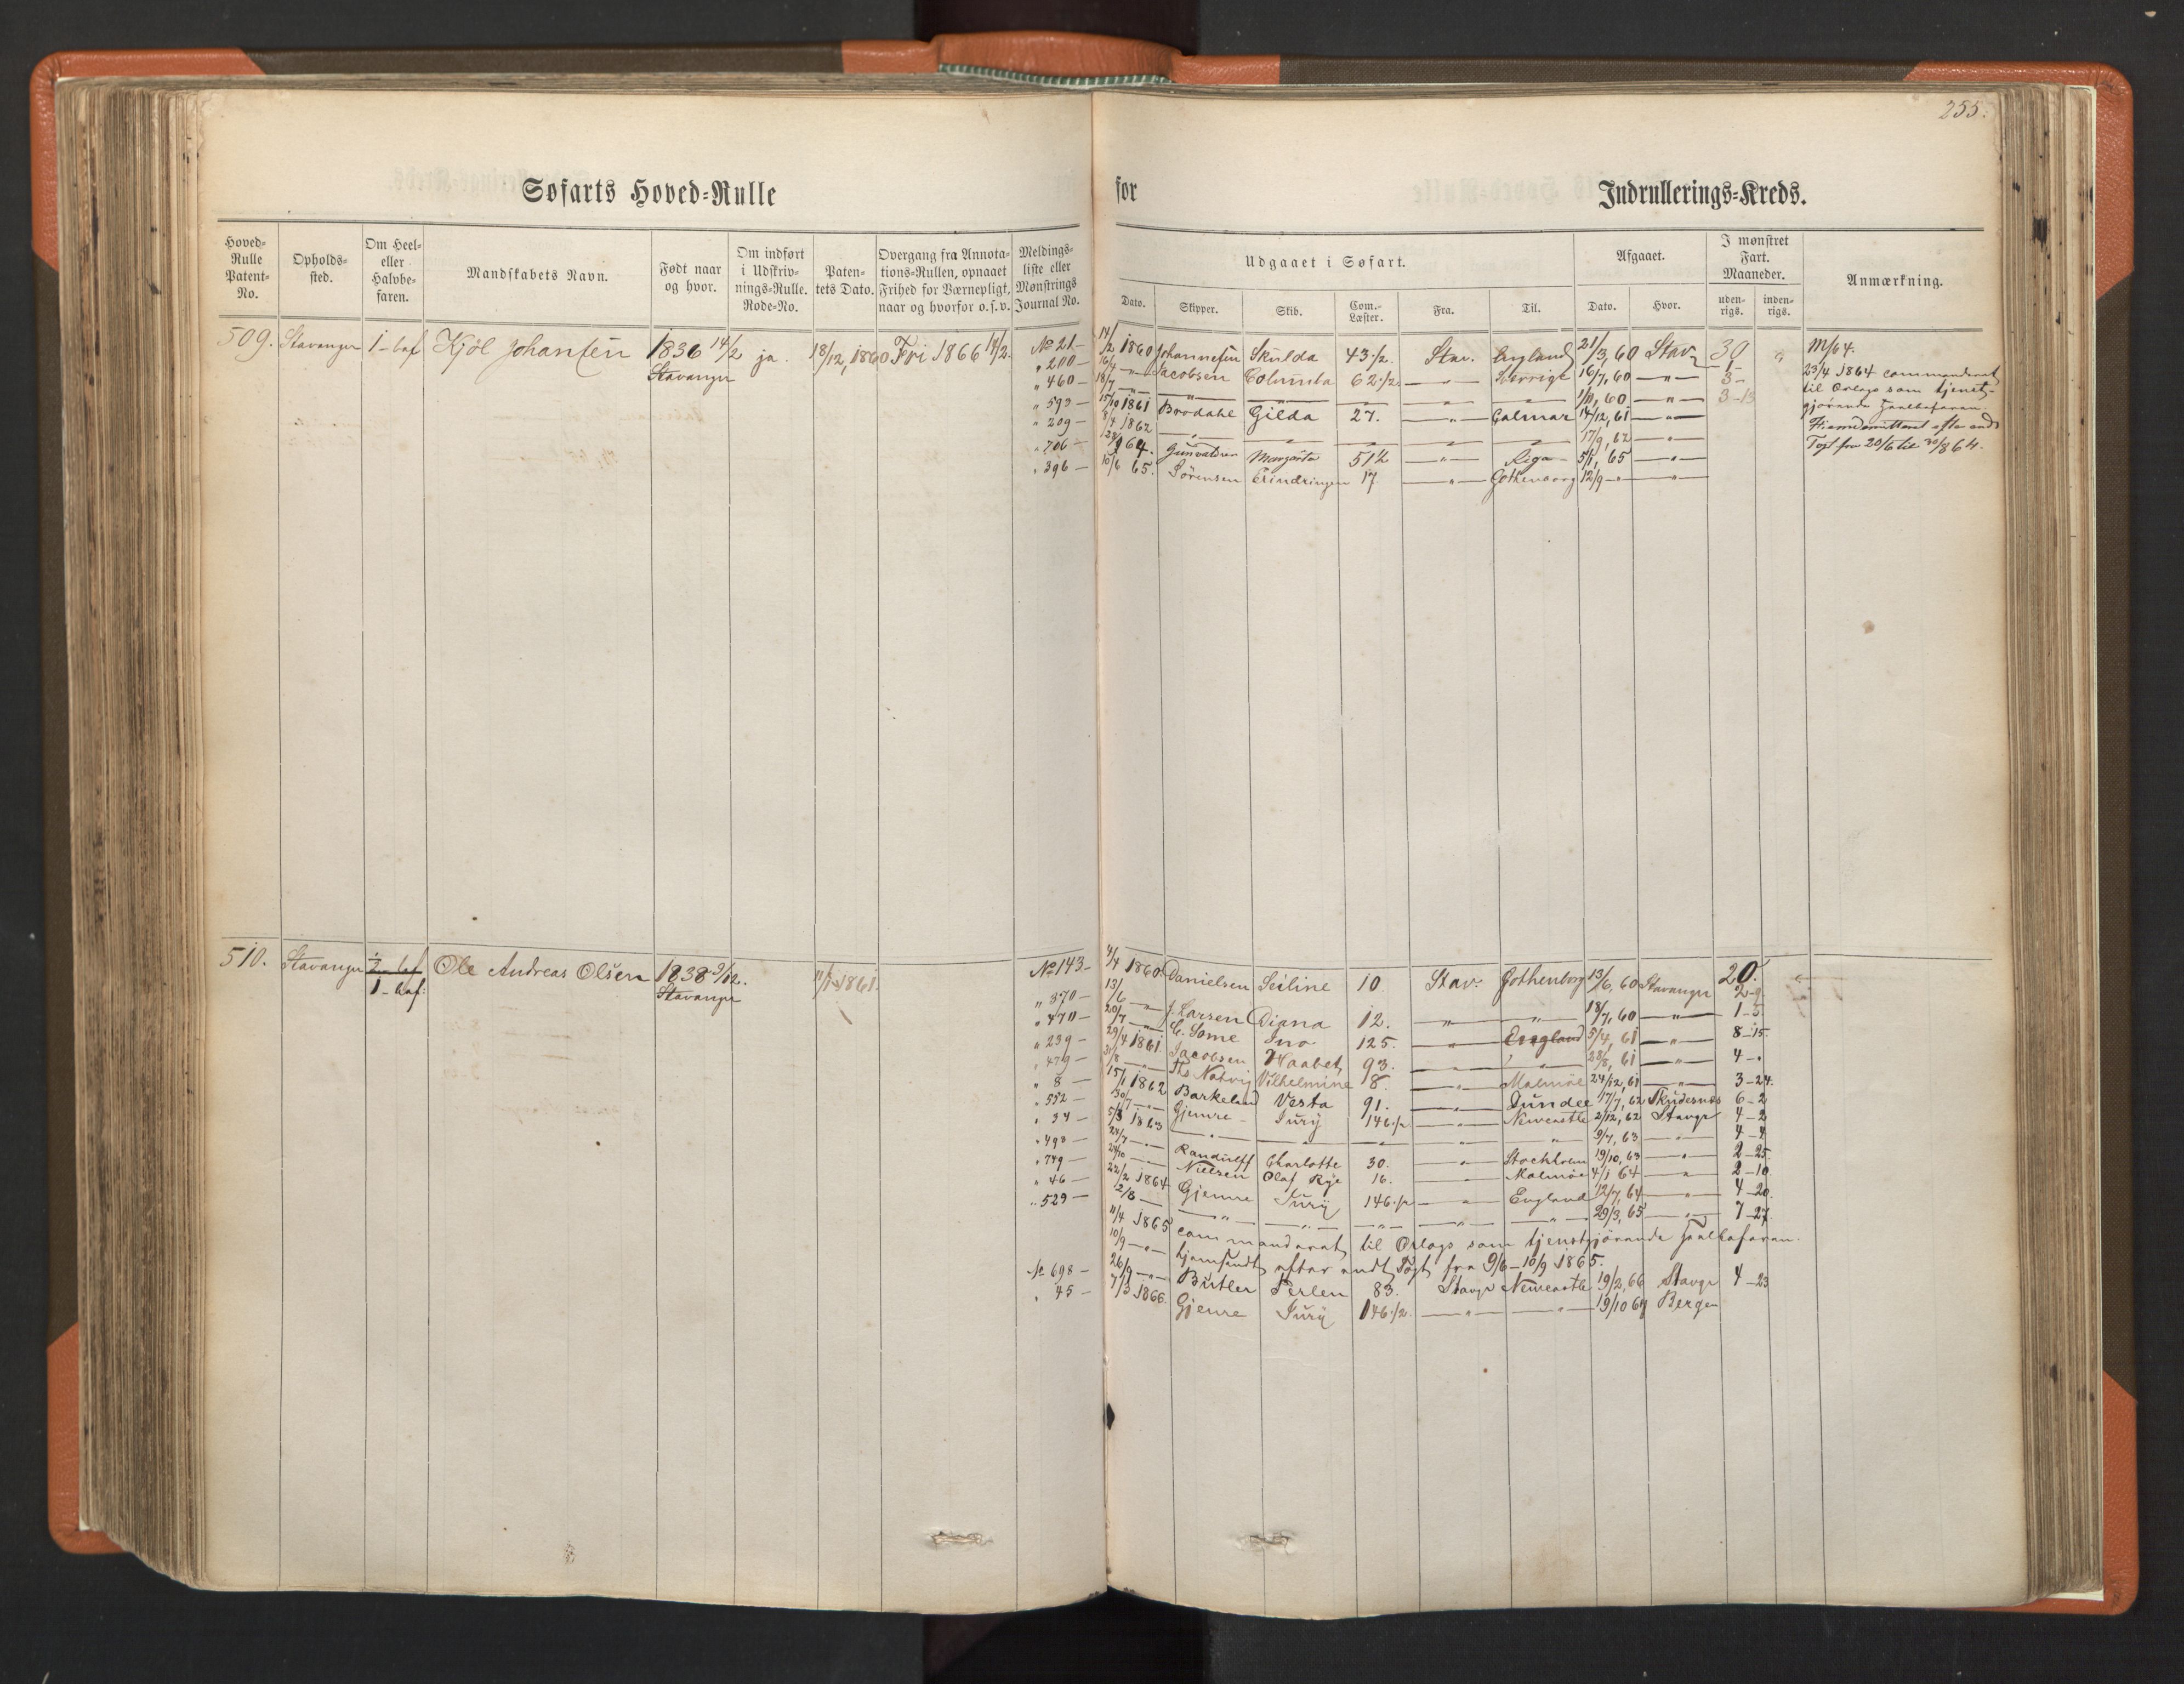 255.
Søfarts Hoved-Rulle for Indrullerings-Kreds.
Hoved-Rulle Patent-No.
Opholds-sted.
Om Heel- eller Halvbe-faren.
Mandskabets Navn.
Født naar og hvor.
Om indført i Udskriv-nings-Rulle. Rode-No.
Paten-tets Dato.
Overgang fra Annota-tions-Rullen, opnaaet Frihed for Værnepligt, naar og hvorfor o.s.v.
Meldings-liste eller Mønstrings Journal No.
Udgaaet i Søfart.
Dato. Skipper. Skib. Com.-Læster. Fra. Til.
Afgaaet.
Dato. Hvor.
I mønstret Fart. Maaneder.
uden-rigs. inden-rigs.
Anmærkning.
509. Stavanger 1-baf Kjøl Johansen 1836 14/2 Stavanger ja. 18/12, 1860 Fri 1866 14/2.
No 21 — 14/2 1860 Johannesen Skulda 43 1/2. Stav. England 21/3, 60 Stav 30
" 200 — 16/4 — Jacobsen Columba 62 1/2 — " — Sverrige 16/7, 60 — " — 1-
" 460 — 18/7 — " — " — " — " — " 1/11, 60 — " — 3-
" 593 — 15/10 1861 Brodahl Gilda 27. — " — Calmar 14/12, 61 — " — 3-13
" 209 — 8/4 1862 — " — " — " — " — " 17/9, 62 — " —
" 706 — 64. Gunvaldsen Margarita 51 1/2 — " — Riga 5/1, 65 — " —
" 396 — 10/6 65. Sørensen Erindringen 17 — " — Gothenborg 12/9 — " — " —
M/64.
23/4 1864 commanderet
til Orlogs som tjenst-
gjørende Heelbefaren.
Hjemdemitteret efter endt
Togt fra 20/6 til 30/8 64.
510. Stavanger 1/2-baf 1-baf: Ole Andreas Olsen 1838 9/12. Stavanger 11/1 1861.
No 143 — 4/4 1860 Danielsen Seiline 10 Stav. Gothenborg 13/6, 60 Stavanger 20. 2-9
" 370 — 13/6 — " — J. Larsen Diana 12. — " — " — 18/7, 60 — " — 1-5
" 470 — 20/7 — " — C. Some Ino 125. — " — England 5/4, 61 — " — 8-15
" 239 — 29/4 1861. Jacobsen Haabet 93. — " — " — 28/8, 61 — " — 4-"
" 479 — 31/8 — Ths Natvig Vilhelmine 18. — " — Malmøe 24/12, 61 — " — 3-24.
" 8 — 15/1 1862 Barkeland Vesta 91. — " — Dundee 17/7, 62 Skudesnæs 6-2
" 552 — 30/7 — " — Gjemre Jury 146 1/2 — " — Newcastle 2/12, 62 Stavgr 4-2
" 34 — 5/3 1863 — " — " — " — " — " 9/7, 63 — " — 4-4
" 498 — 24/7 — " — Randulff Charlotte 30. — " — Stockholm 19/10, 63 — " — 2-25.
" 749 — 24/10 — " — Nielsen Olaf Rye 16. — " — Malmøe 4/1 64 — " — 2-10
" 46 — 22/2 1864 Gjemre Jury 146 1/2 — " — England 12/7, 64 — " — 4-20.
" 529 — 2/8 — " — " — " — " — " 29/3, 65 — " — 7-27
11/4 1865 commanderet til Orlogs som tjenstgjørende Heelbefaren.
10/9 — " — hjemsendt efter endt Togt fra 9/6 — 10/9 1865.
No 698 — 26/9 — " — Butler Perlen 83. Stavgr Newcastle 19/2, 66 Stavgr 4-23
" 45 — 7/3 1866. Gjemre Jury 146 1/2. — " — " — 19/10 67 Bergen